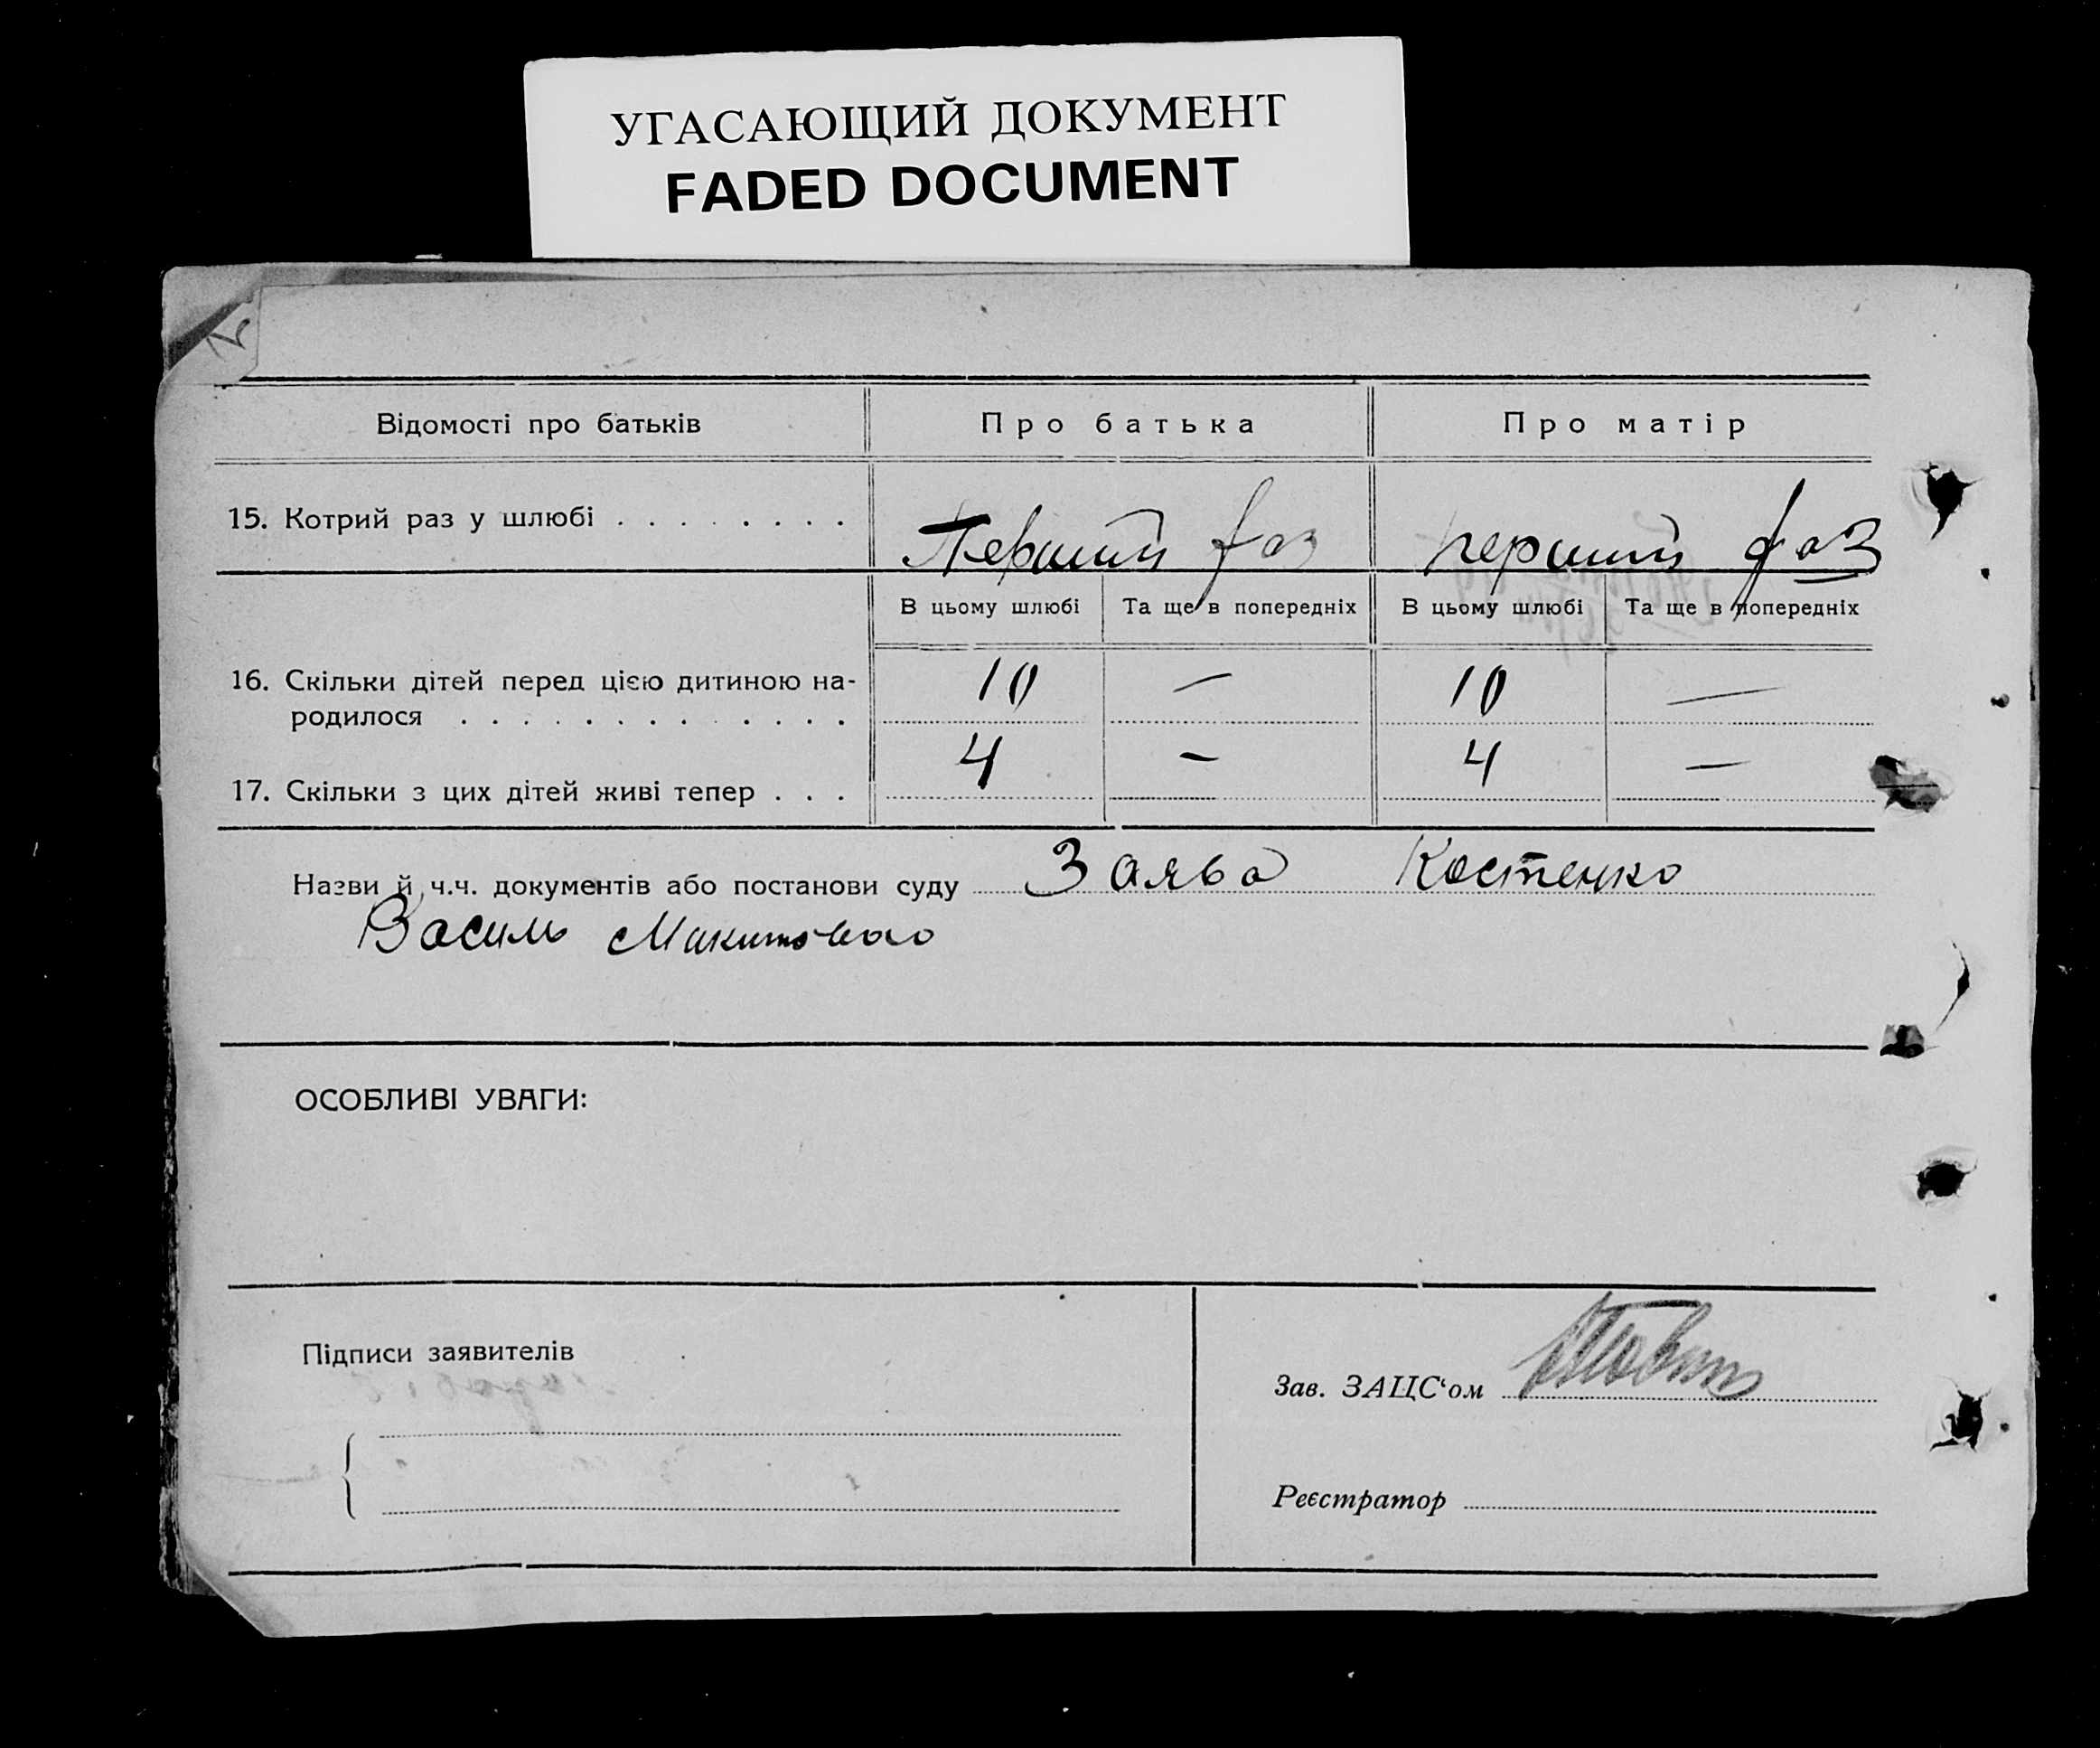 УГАСАЮЩИЙ ДОКУМЕНТ
FADED DOCUMENT
Відомості про батьків
Про батька
Про матір
15. Котрий раз у шлюбі . . . . . . . .
Перший раз
перший раз
В цьому шлюбі
Та ще в попередніх
В цьому шлюбі
Та ще в попередніх
16. Скільки дітей перед цією дитиною на-
родилося . . . . . . . . . . . . .
10
—
10
—
17. Скільки з цих дітей живі тепер . . .
4
—
4
—
Назви й ч.ч. документів або постанови суду Заява Костенко
Василь
ОСОБЛИВІ УВАГИ:
Підписи заявителів
Зав. ЗАЦС‘ом
Реєстратор